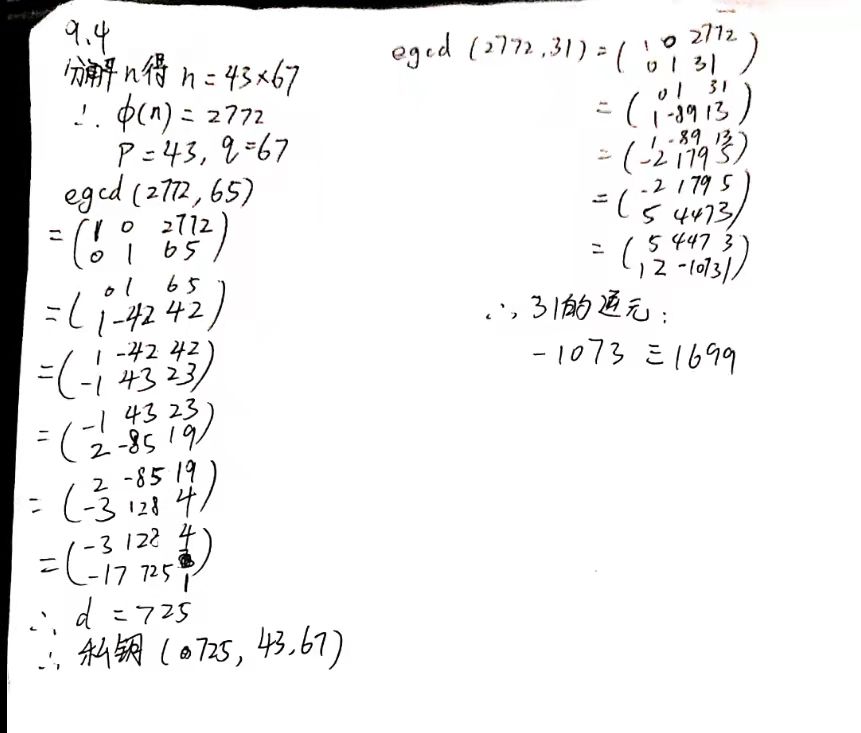 9.4
分解n得 n=43×67
∴ φ(n)=2772
P=43, q=67
egcd(2772,65)
=(1 0 2772
0 1 65)
=(0 1 65
1 -42 42)
=(1 -42 42
-1 43 23)
=(-1 43 23
2 -85 19)
=(2 -85 19
-3 128 4)
=(-3 128 4
-17 725 1)
∴ d=725
∴ 私钥(725, 43,67)
egcd (2772,31)=(1 0 2772
0 1 31)
=(0 1 31
1 -89 13)
=(1 -89 13
-2 179 5)
=(-2 179 5
5 447 3)
=(5 447 3
12 -1073 1)
∴ 31的逆元:
-1073 ≡1699